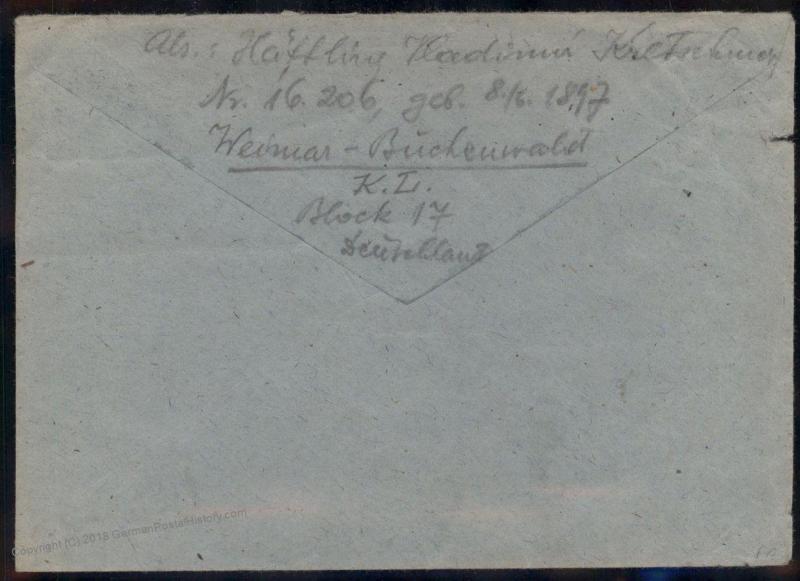 Abs.: Häftling Vladimir Kretschmer
Nr. 16.206, geb. 8./6. 1897
Weimar - Buchenwald
K. L.
Block 17
Deutschland
Copyright (C) 2018 GermanPostalHistory.com